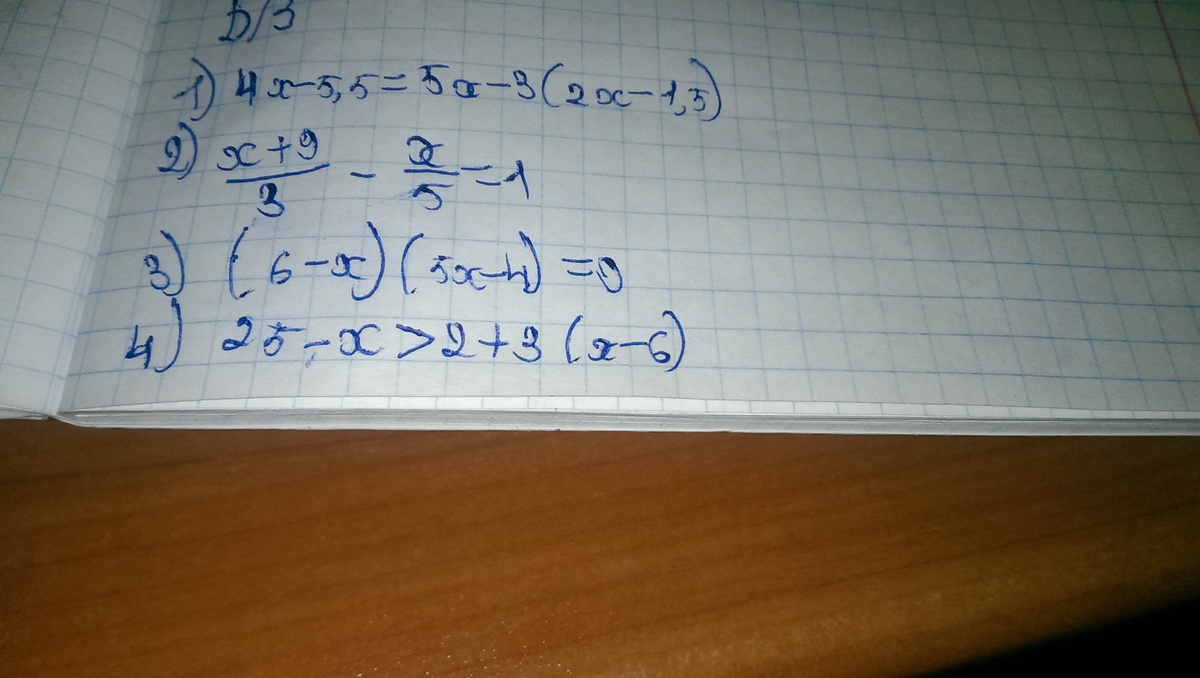 D/З
1) 4x-5,5=5x-3(2x-1,5)
2) \frac{x+9}{3} - \frac{x}{5} = 1
3) (6-x)(5x-4)=0
4) 25-x>2+3(x-6)